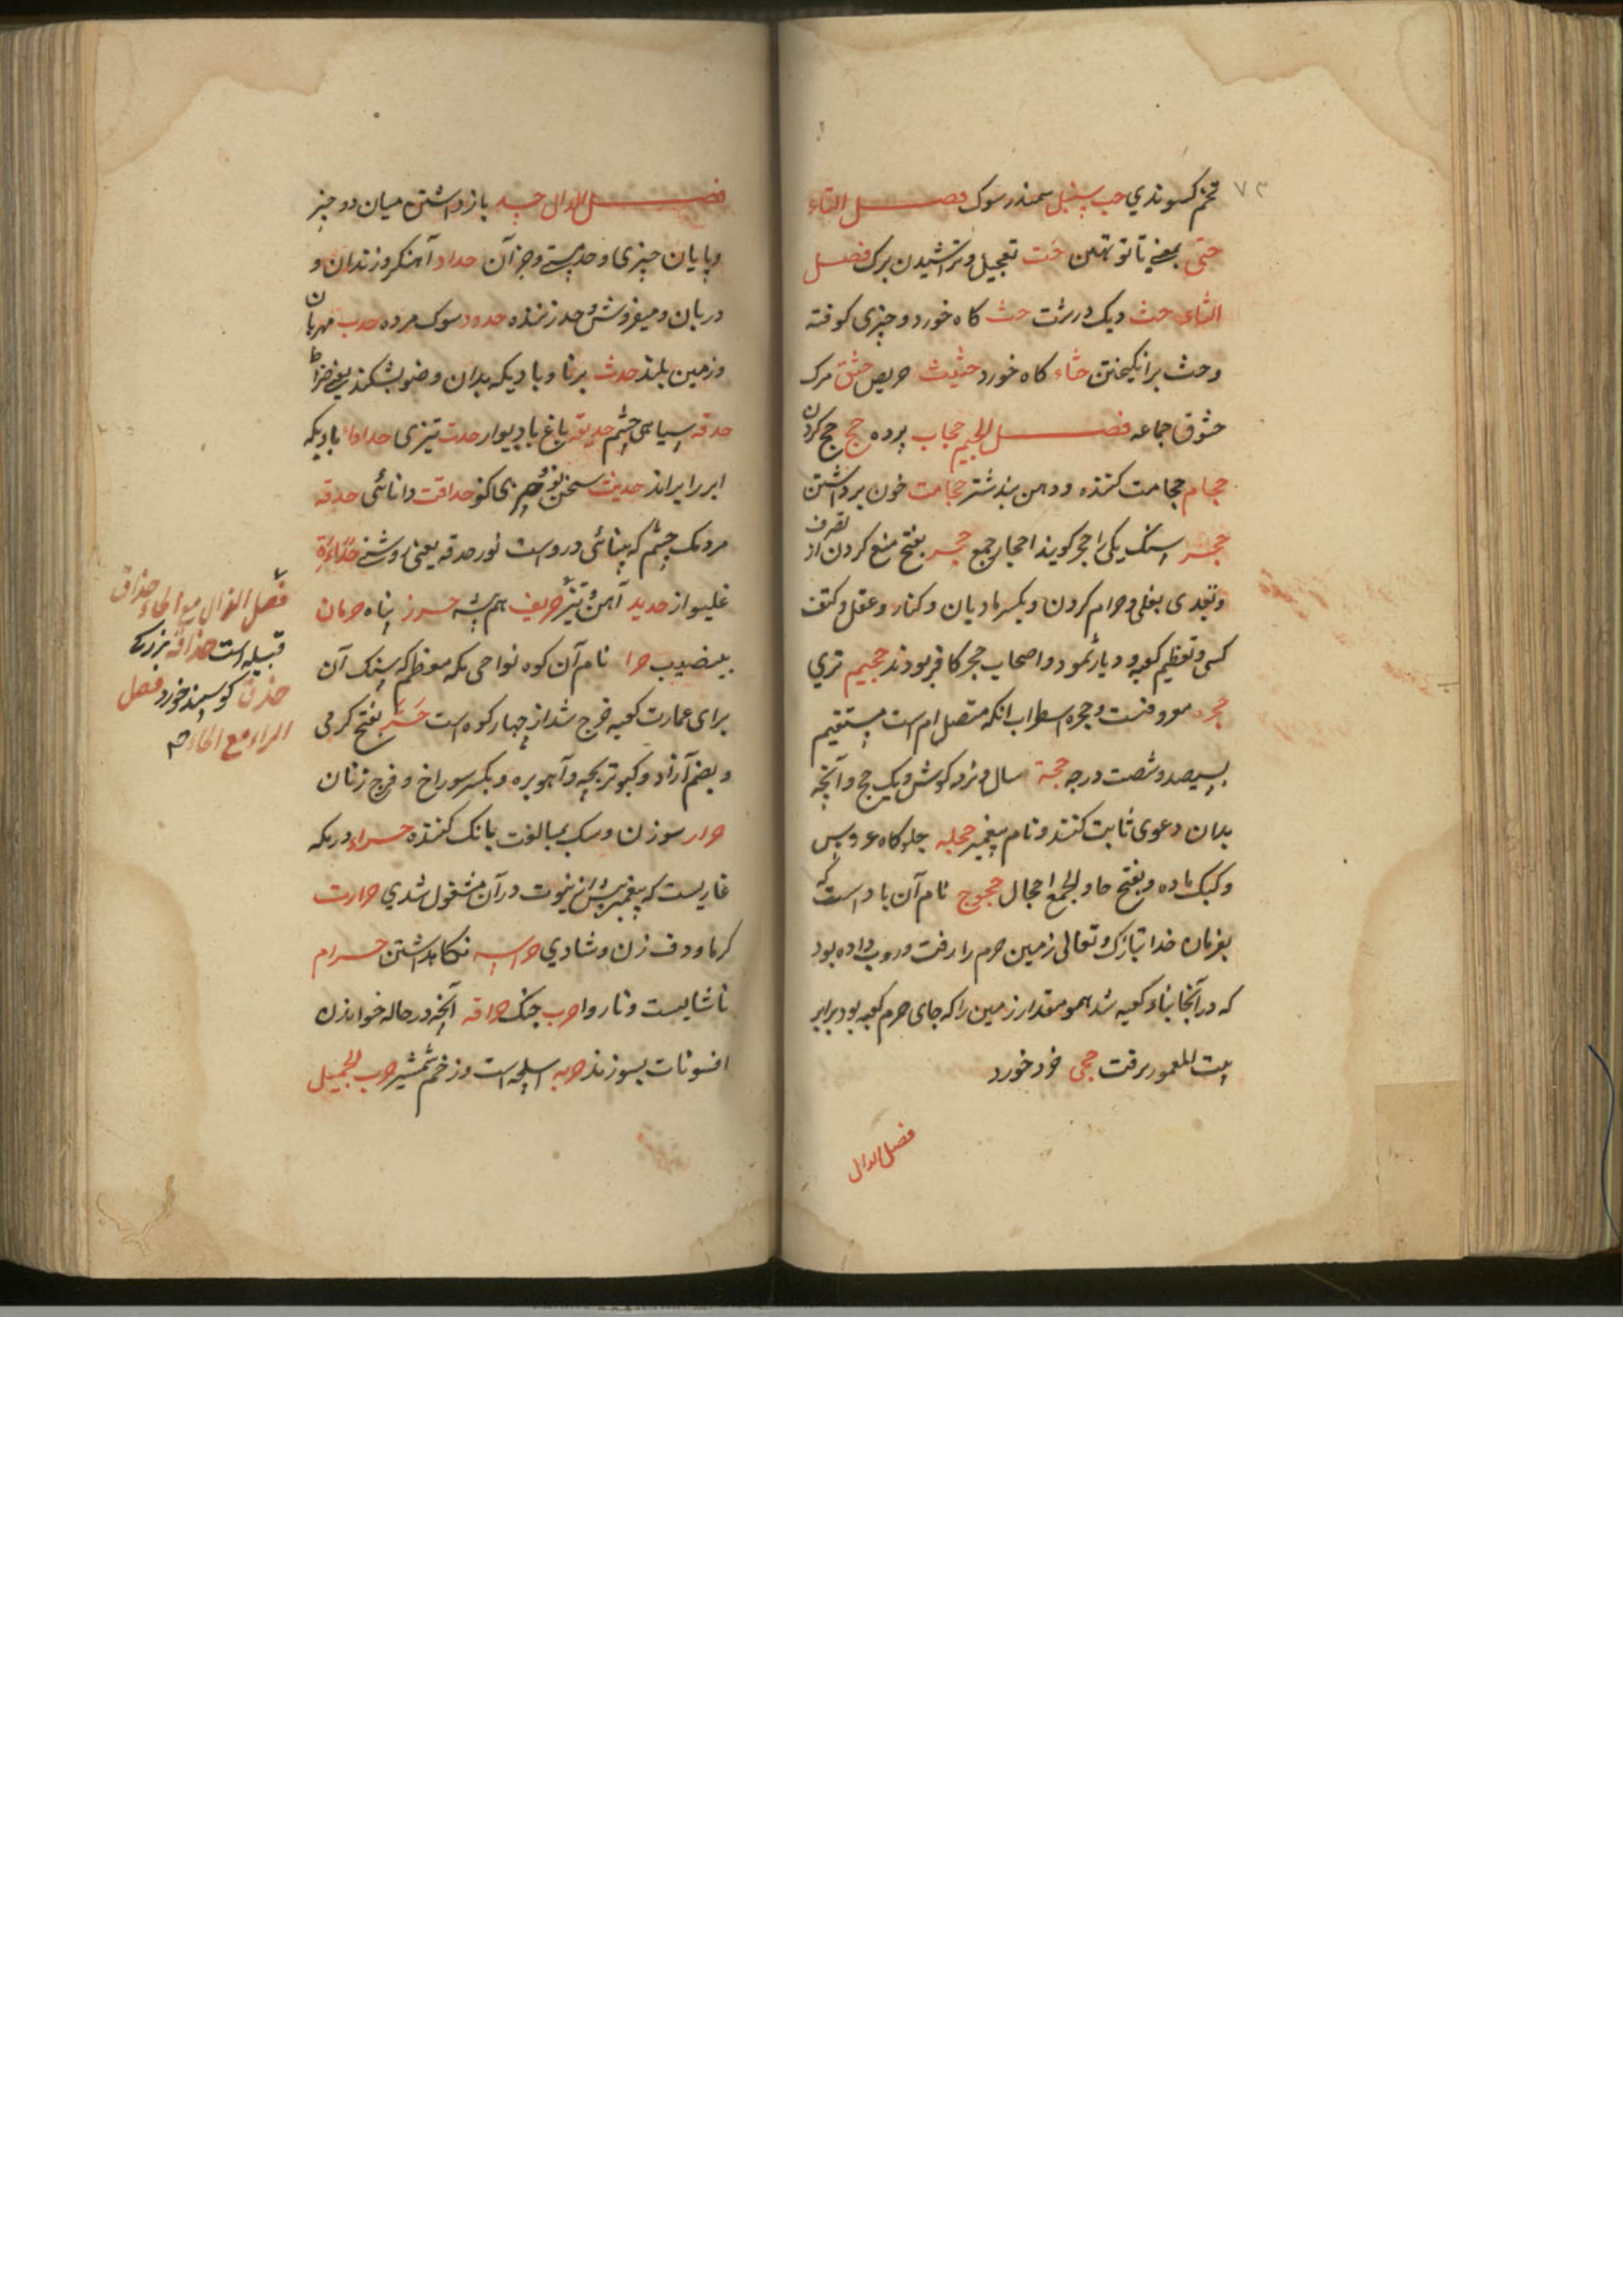 ۷۳
تخم کسوندی حب سنبل سمندر سوک فصل التاء
حتی بمعنی تا تو تهتن حت تعجیل و تراشیدن برک فصل
الثاء حث ویک درزت حث کاه خورد و چیزی کوفته
و حث برانکیختن حثاء کاه خورد حثیث حریص مرک
حثوق جماعه فصل الجیم حجاب پرده حج حج کردن
حجام حجامت کننده و دهن بند شتر حجامت خون برداشتن
حجر سنک یکی را حجر کویند احجار جمع حجر بفتح منع کردن از تصرف
و تعدی بغلی و حرام کردن و بکسر مادیان و کنار و عقل و کنف
کسی و تعظیم کعبه و دیار ثمود و اصحاب حجر کافر بودند حجیم تری
حجره معروفست و حجره اسطرلاب انکه متصل ام است مستقیم
بسیصد و شصت درجه حجة سال و نرمه کوش و یک حج و آنچه
بدان دعوی ثابت کنند و نام پیغمبر حجله جلوه کاه عروس
و کبک ماده و بفتح حا و الجمع احجال حجوج نام آن باد است که
بفرمان خدا تبارک و تعالی زمین حرم را رفت و روب داده بود
که در آنجا بناء کعبه شد همو مقدار زمین را که جای حرم کعبه بود برابر
بیت المعمور برفت حجی خرد خورد
فصل الدال
فصل الدال حد بازداشتن میان دو چیز
و پایان چیزی و حد هستی و جز آن حداد آهنکر و زندان و
دربان و میفروش و حد زننده حدود سوک مرده حدب مهربان
و زمین بلند حدث برنا و بادیکه بدان وضو بشکند یعنی ضراط
حدقه سیاهی چشم حدیقه باغ با دیوار حدت تیزی حداواء بادیکه
ابر را براند حدیث سخن نو و چیزی کو حداقت دانائی حدقه
مردمک چشم که بینائی دروست نور حدقه یعنی روشنی
غلیواز حدید آهن و تیز حریف هم پیشه حرز پناه حرمان
بی نصیب حرا نام آن کوه نواحی مکه معظم که سنک آن
برای عمارت کعبه خرج شد از چهار کوه است حر بفتح کرمی
و بضم آزاد و کبوتر بچه و آهو بره و بکسر سوراخ و فرج زنان
حرار سوزن و سک بمبالغت بانک کننده حراء در مکه
غاریست که پیغمبر پیش از نبوت در آن مشغول شدی حرارت
کرما و دف زن و شادی حراسه نکاهداشتن حرام
ناشایست و ناروا حرب جنک حراقه آنچه در حاله خواندن
افسونات بسوزند حربه اسلحه است و زخم شمشیر حرب الجمیل
فصل الذال مع الحاء حذاق
قبیله است حذاقه بزرک
حذق کوسپند خورد فصل
الراء مع الحاء